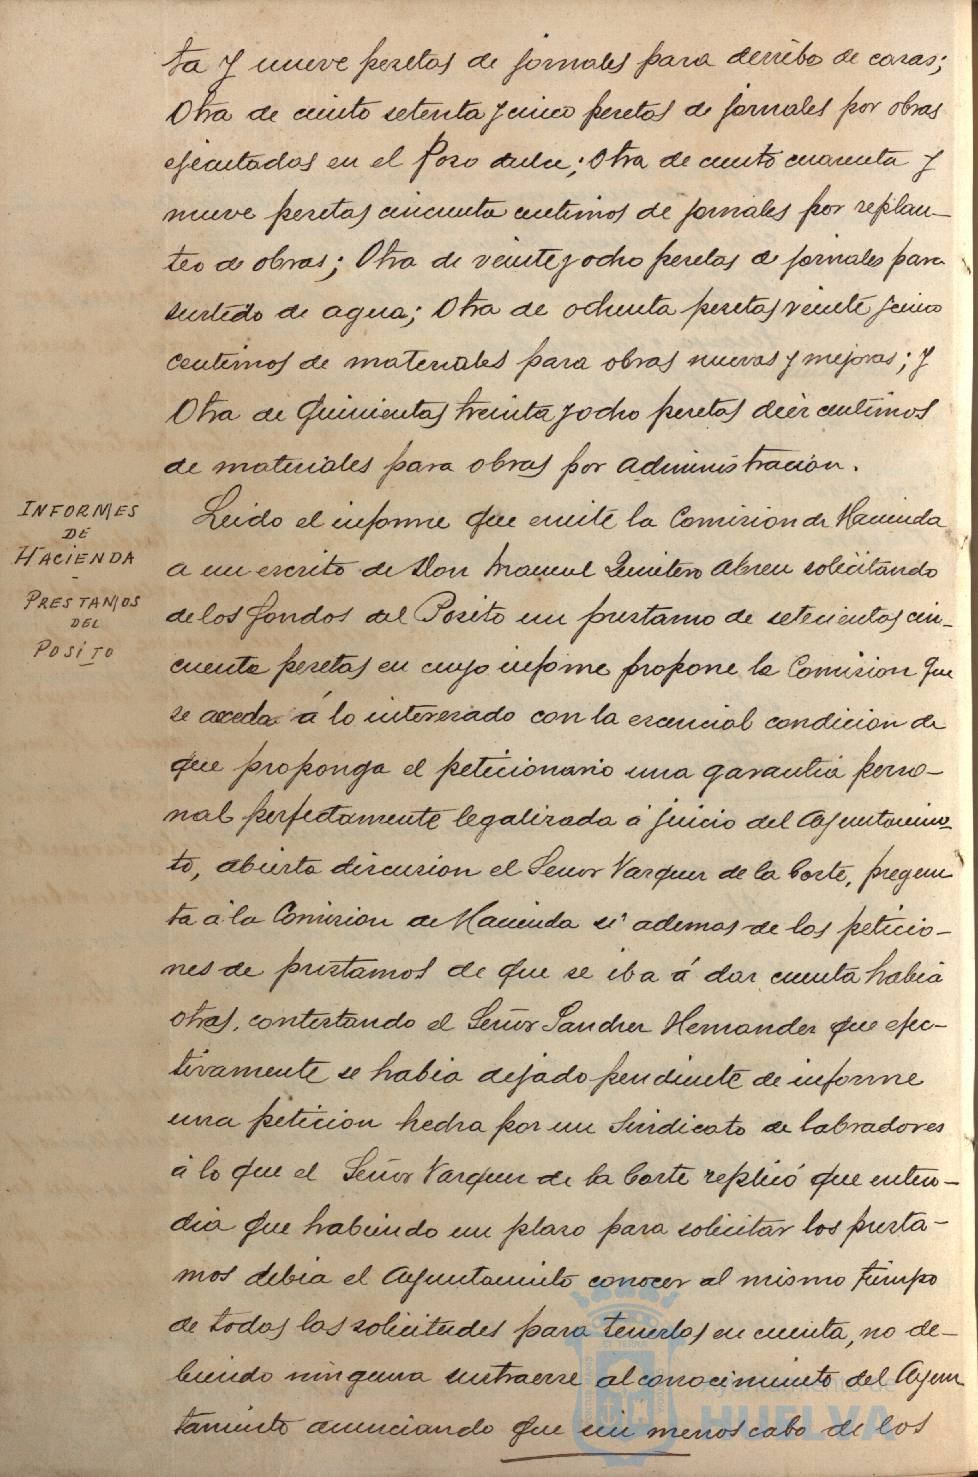 ta y nueve pesetas de jornales para derribo de casas;
Otra de ciento setenta y cinco pesetas de jornales por obras
ejecutadas en el Pozo dulce; Otra de ciento cuarenta y
nueve pesetas cincuenta centimos de jornales por replan-
teo de obras; Otra de veinte y ocho pesetas de jornales para
surtido de agua; Otra de ochenta pesetas veinte y cinco
centimos de materiales para obras nuevas y mejoras; y
Otra de Quinientas treinta y ocho pesetas diez centimos
de materiales para obras por administracion.
INFORMES
DE
HACIENDA
-
PRESTAMOS
DEL
POSITO
Leido el informe que emite la Comision de Hacienda
a un escrito de Don Manuel Quintero Abreu solicitando
de los fondos del Posito un prestamo de setecientas cin-
cuenta pesetas en cuyo informe propone la Comision que
se acceda á lo interesado con la escencial condicion de
que proponga el peticionario una garantia perso-
nal perfectamente legalizada á juicio del Ayuntamien-
to, abierta discusion el Señor Vazquez de la Corte, pregun
ta á la Comision de Hacienda si ademas de las peticio-
nes de prestamos de que se iba á dar cuenta habia
otras, contestando el Señor Sanchez Hernandez que efec-
tivamente se habia dejado pendiente de informe
una peticion hecha por un Sindicato de labradores
á lo que el Señor Vazquez de la Corte replicó que enten-
dia que habiendo un plazo para solicitar los presta-
mos debia el Ayuntamiento conocer al mismo tiempo
de todas las solicitudes para tenerlas en cuenta, no de-
biendo ninguna sustraerse al conocimiento del Ayun
tamiento anunciando que sin menoscabo de los
HUELVA